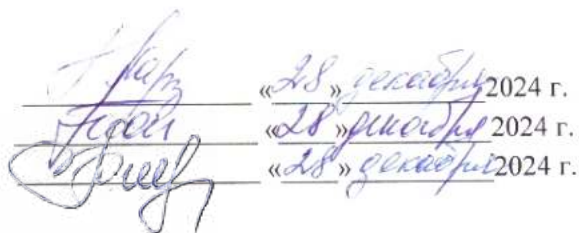 «28» декабря 2024 г.
«28» декабря 2024 г.
«28» декабря 2024 г.